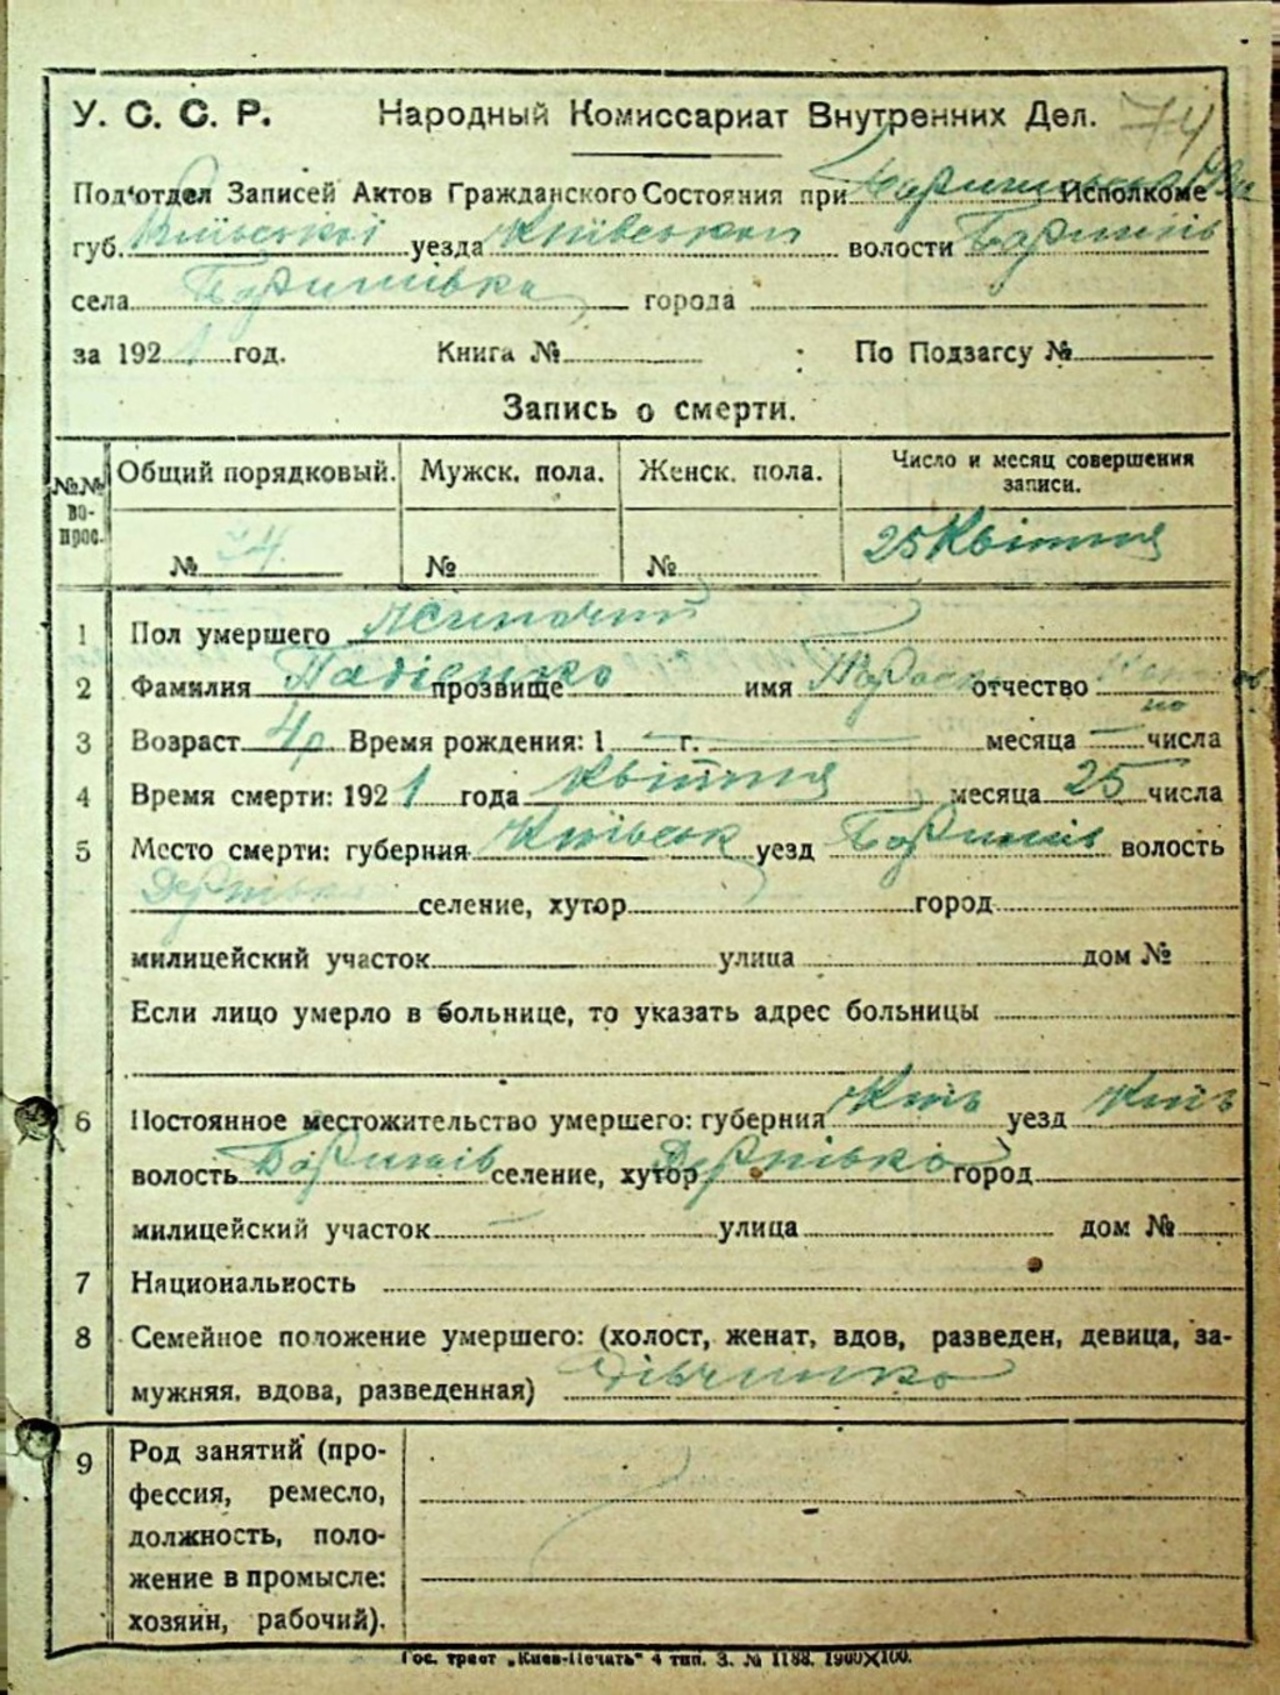 У. С. С. Р. Народный Комиссариат Внутренних Дел. 74
Подотдел Записей Актов Гражданского Состояния при Исполкоме
губ. Київської уезда Київської волости Баришів
села Баришівка города
за 1921 год. Книга № По Подзагсу №
Запись о смерти.
№№ вопрос. Общий порядковый. Мужск. пола. Женск. пола. Число и месяц совершения записи.
№ 34. № № 25 Квітня
1 Пол умершего жіночий
2 Фамилия прозвище имя отчество
3 Возраст 4р Время рождения: 1 — г. месяца — числа
4 Время смерти: 1921 года Квітня месяца 25 числа
5 Место смерти: губерния Київськ уезд Баришів волость
Дернівка селение, хутор город
милицейский участок улица дом №
Если лицо умерло в больнице, то указать адрес больницы
6 Постоянное местожительство умершего: губерния Київ уезд Київ
волость Баришів селение, хутор Дернівка город
милицейский участок — улица дом №
7 Национальность
8 Семейное положение умершего: (холост, женат, вдов, разведен, девица, за-
мужняя, вдова, разведенная) Дівчинка
9 Род занятий (про-
фессия, ремесло,
должность, поло-
жение в промысле:
хозяин, рабочий).
Гос. трест „Киев-Печать" 4 тип. З. № 1188. 1900X100.